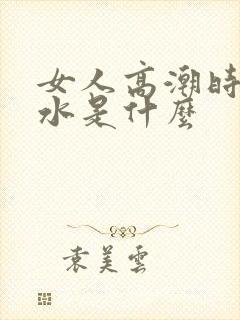 女人高潮時
水是什麼
袁美雲